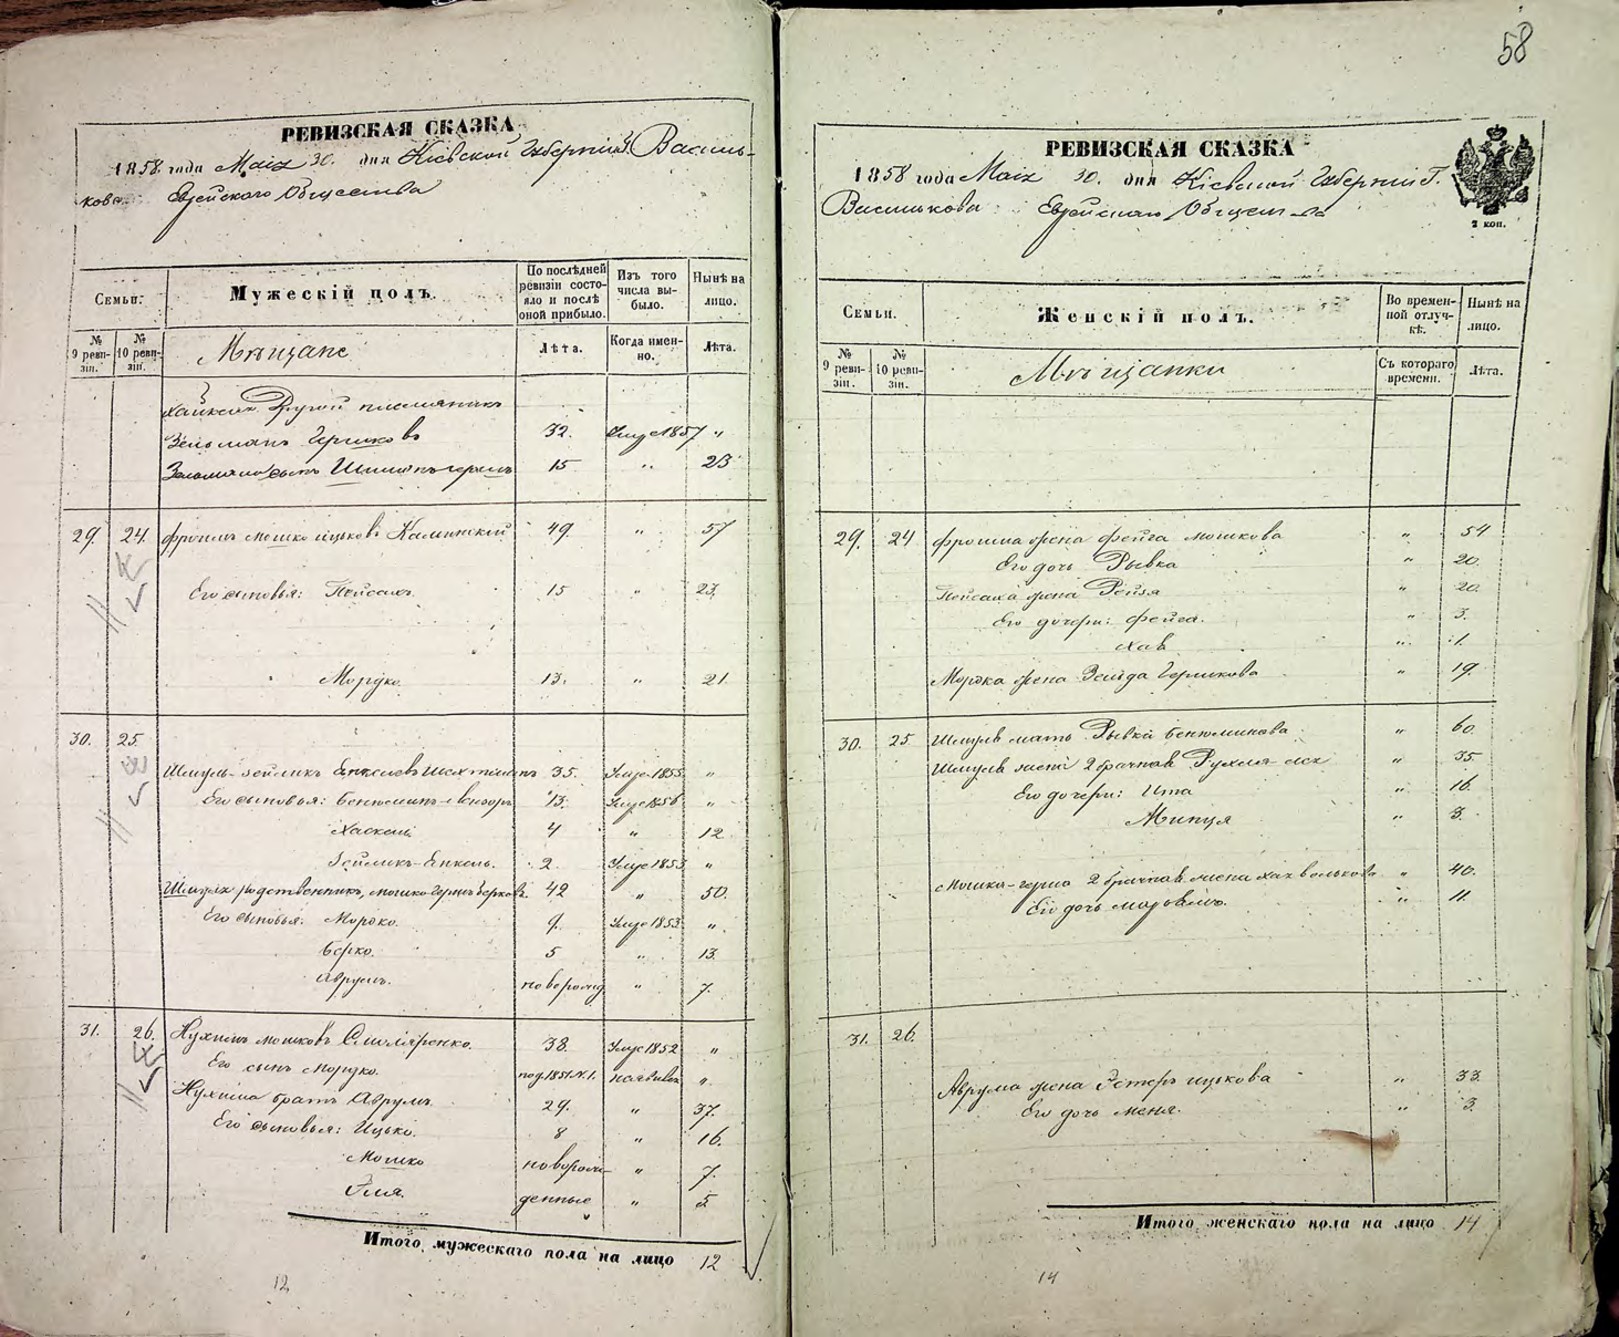 РЕВИЗСКАЯ СКАЗКА
1858 года Маія 30. дня Кіевской Губерніи Г. Василь-
кова Еврейского Общества
Семьи.
Мужескій полъ.
По послѣдней ревизіи состояло и послѣ оной прибыло.
Изъ того числа выбыло.
Нынѣ на лицо.
№ 9 реви-зіи.
№ 10 реви-зіи.
Мѣщане
Лѣта.
Когда имен-но.
Лѣта.
Другой племянникъ
Зельманъ Гершковъ 32. Умре 1857 "
сынъ 15 " 23
29. 24. Фроимъ Мошко Ицковъ Калинскій 49. " 57
Его сыновья: Пейсахъ 15 " 23.
Мордко. 13. " 21
30. 25.
Шмуль-Зейликъ Янкелевъ 35. Умре 1855 "
Его сыновья: Бенюминъ 13. Умре 1856 "
Хаскель 4 " 12
Зейликъ-Янкель. 2. Умре 1853 "
Шмуля родственникъ, Мошко-Гершъ Берковъ 42 " 50.
Его сыновья: Мордко. 9. Умре 1853 "
Берко. 5 " 13.
Аврумъ. новорожд " 7.
31. 26. Нухимъ Мошковъ 38. Умре 1852 "
Его сынъ Мордко. "
Нухима братъ Аврумъ 29. " 37.
Его сыновья: Ицько. 8 " 16.
Мошко новорож- " 7.
Эля. денные " 5
Итого мужескаго пола на лицо 12
12
58
РЕВИЗСКАЯ СКАЗКА
1858 года Маія 30. дня Кіевской Губерніи Г.
Василькова Еврейскаго Общества
2 коп.
Семьи.
Женскій полъ.
Во времен-ной отлуч-кѣ.
Нынѣ на лицо.
№ 9 реви-зіи.
№ 10 реви-зіи.
Мѣщанки
Съ котораго времени.
Лѣта.
29. 24 Фроима жена Фейга Мошкова " 54
Его дочь Рывка " 20.
Пейсаха жена Рейзя " 20.
Его дочери: Фейга. " 3.
Хая " 1.
Мордка жена Зельда Гершкова " 19.
30. 25. Шмуля мать Рывка Бенюминова " 60
Шмуля жена 2 брачная Рухля " 35.
Его дочери: Ита " 16.
Минця " 3.
Мошка-Герша 2 брачная жена Хая Волькова " 40.
Ея дочь " 11.
31. 26.
Аврума жена Эстеръ Ицькова " 33.
Его дочь Меня. " 3.
Итого женскаго пола на лицо 14
14